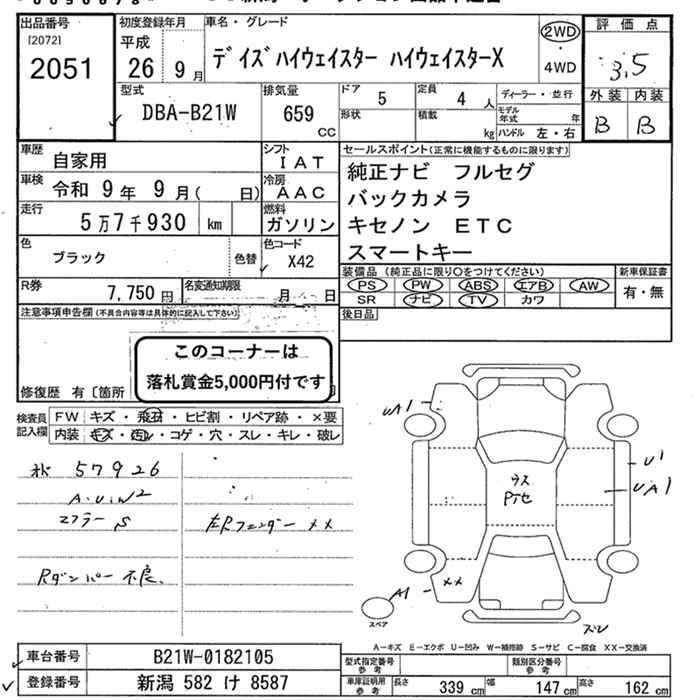 出品番号
[2072]
2051
初度登録年月
平成
26 9 月
車名・グレード
デイズハイウェイスター ハイウェイスターX
2WD
・
4WD
評価点
3.5
外装 内装
B B
型式
DBA-B21W
排気量
659
CC
ドア 5
形状
定員 4 人
積載 kg
ディーラー・並行
モデル年式 年
ハンドル 左・右
車歴
自家用
シフト
IAT
車検
令和 9 年 9 月( 日)
冷房
AAC
走行
5万7千930 km
燃料
ガソリン
色
ブラック
色替
色コード
X42
R券
7,750 円
名変通知期限
月 日
セールスポイント(正常に機能するものに限ります)
純正ナビ フルセグ
バックカメラ
キセノン ETC
スマートキー
装備品(純正品に限り○をつけてください)
PS PW ABS エアB AW
SR ナビ TV カワ
新車保証書
有・無
後日品
注意事項申告欄(不具合内容等は具体的に記入して下さい)
このコーナーは
落札賞金5,000円付です
修復歴 有〔箇所
検査員
記入欄
FW キズ・飛石・ヒビ割・リペア跡・×要
内装 キズ・汚レ・コゲ・穴・スレ・キレ・破レ
57926
マフラー S
左Rフェンダー ××
Rダンパー不良
UA1
U1
UA1
ウス
A1
××
スレ
スペア
A-キズ E-エクボ U-凹み W-補修跡 S-サビ C-腐食 XX-交換済
車台番号
B21W-0182105
登録番号
新潟 582 け 8587
型式指定番号
参考
類別区分番号
参考
車庫証明用
参考
長さ 339 cm
幅 147 cm
高さ 162 cm